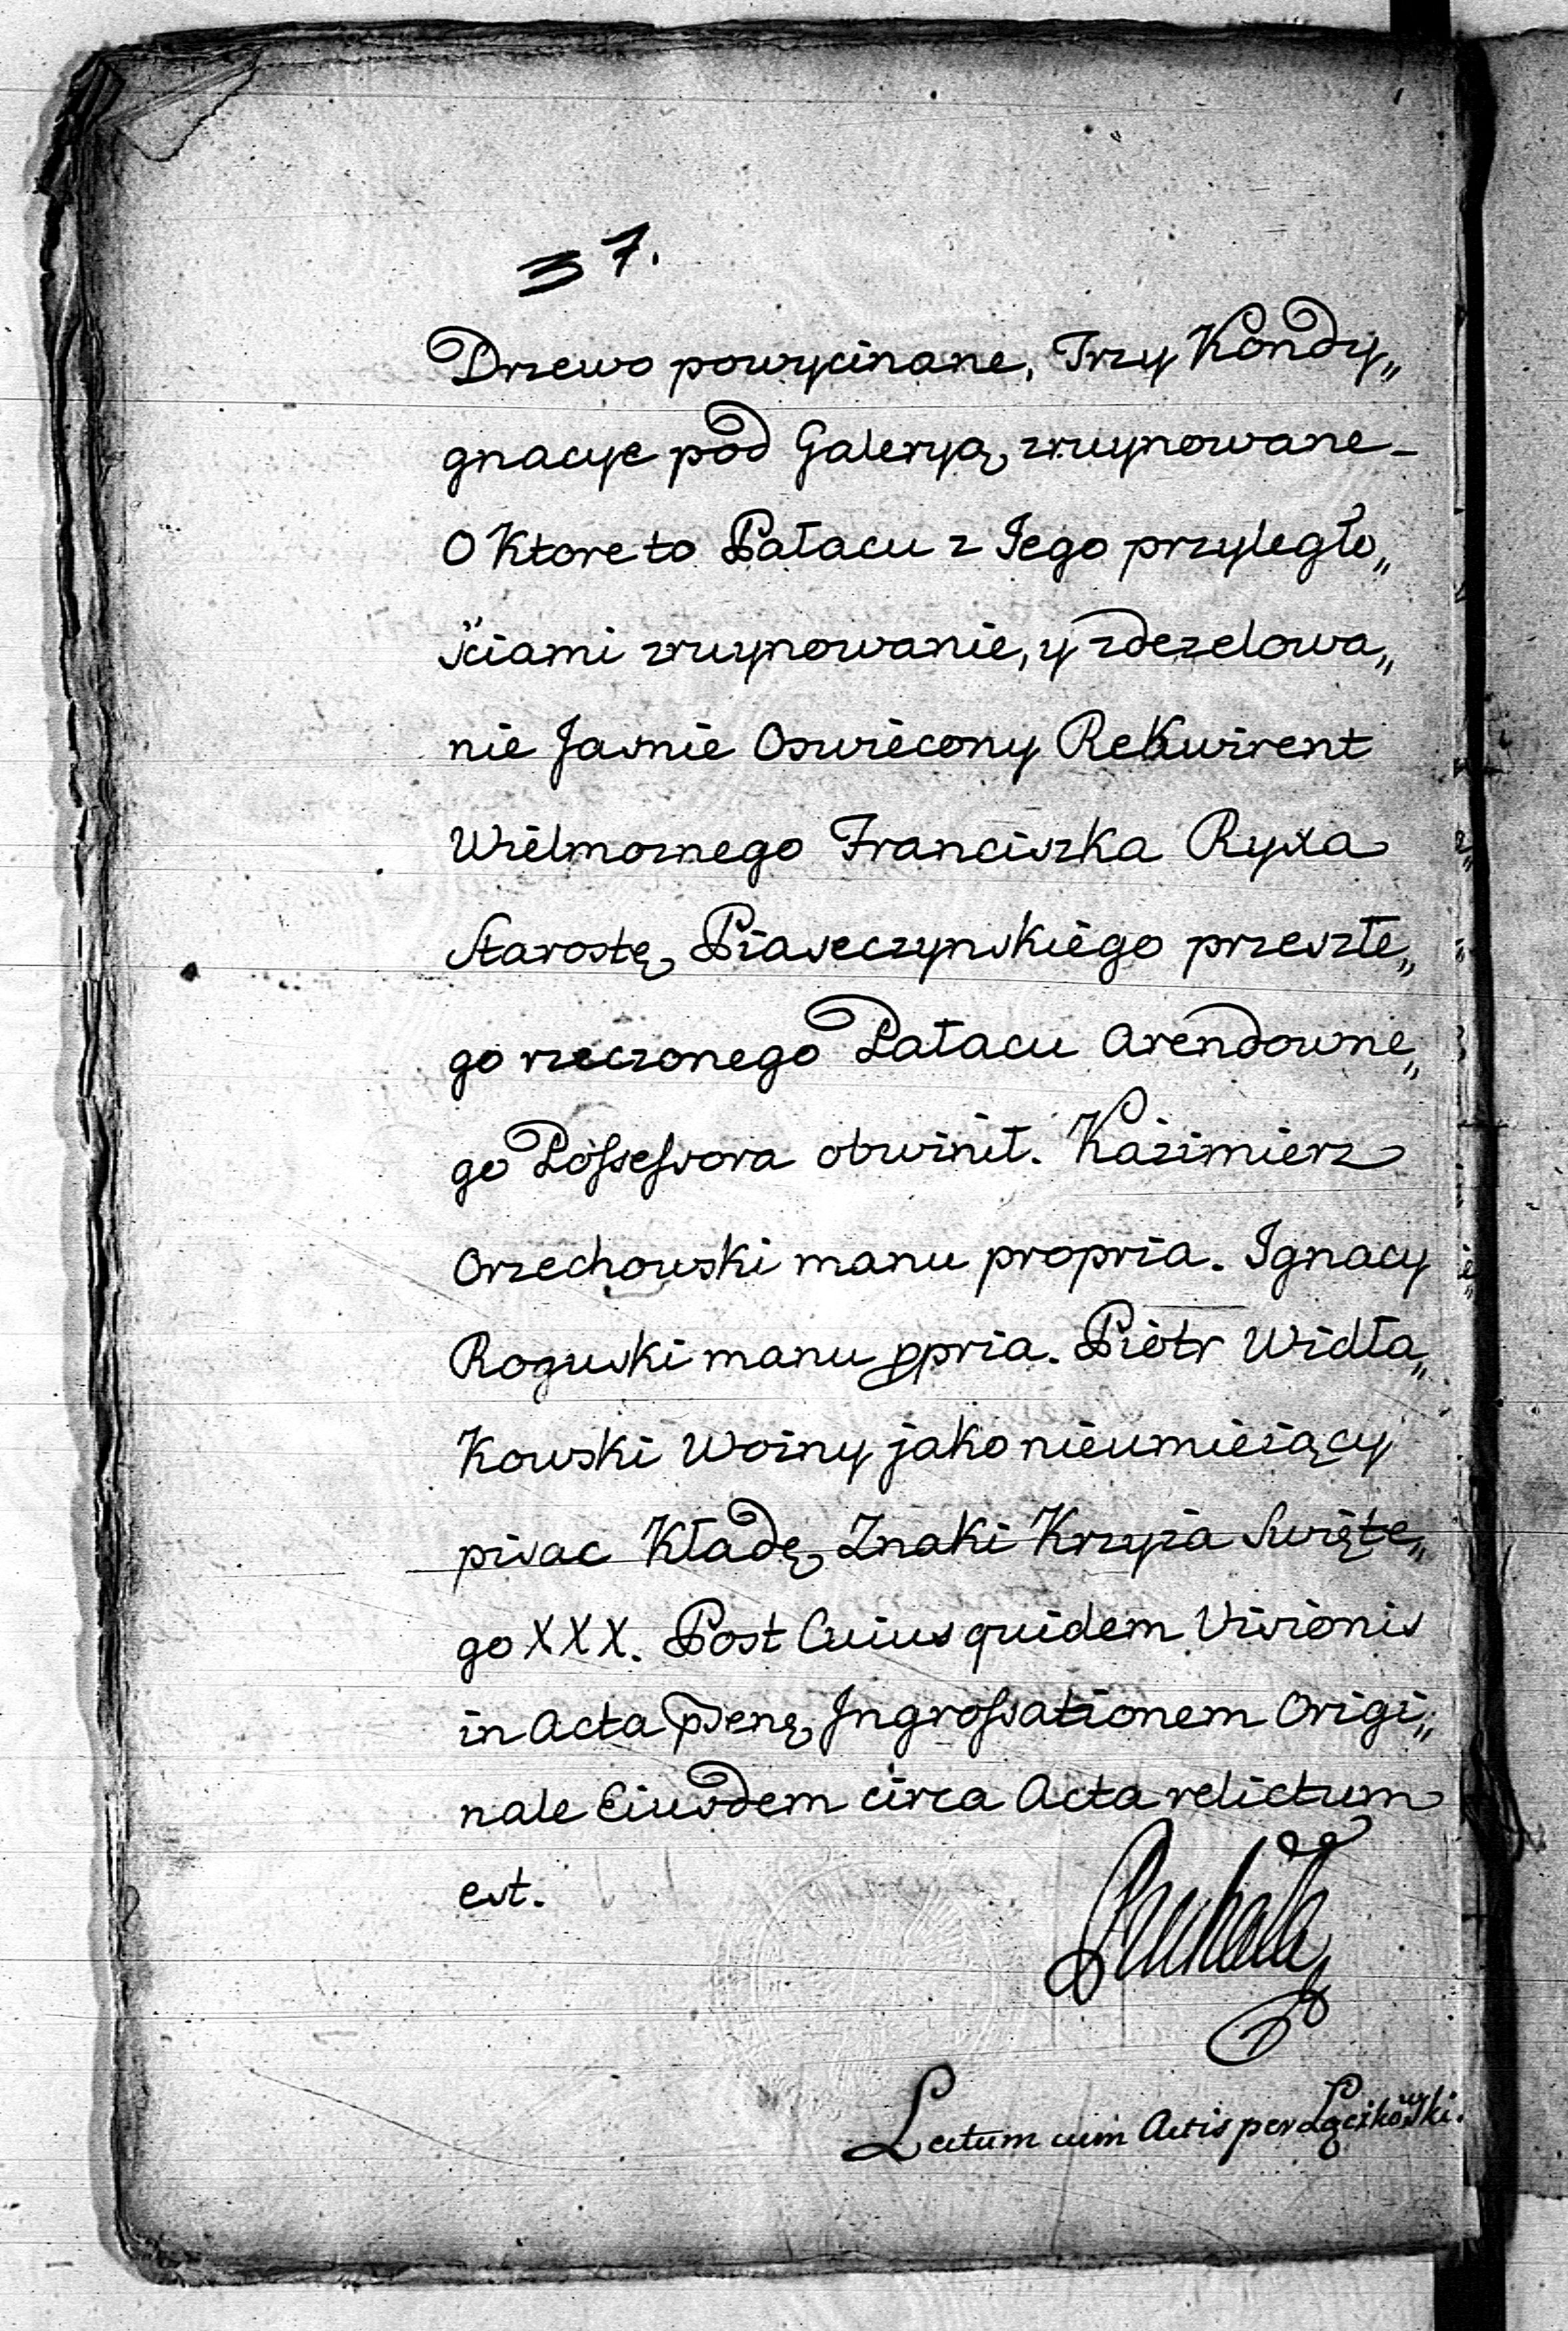 37.
Drzewo powycinane, Trzy Kondy„
gnacye pod Galeryą zruynowane_
O Ktore to Pałacu z Jego przyległo„
sciami zruynowanie, y zdezelowa„
nie Jasnie Oswiecony Rekwirent
Wielmoznego Franciszka Ryxa
Starostę Piaseczynskiego przeszłe„
go rzeczonego Pałacu Arendowne„
go Possessora obwinił. Kaźimierz
Orzechowski manu propria. Ignacy
Roguski manu ppria. Piotr Widła„
Kowski Wozny jako nieumieiący
pisac Kładę Znaki Krzyża Swięte„
go XXX. Post Cuius quidem Visionis
in Acta pſenę Ingrossationem Origi„
nale Eiusdem circa Acta relictum
est.
Lectum cum Actis per Łączkowski.